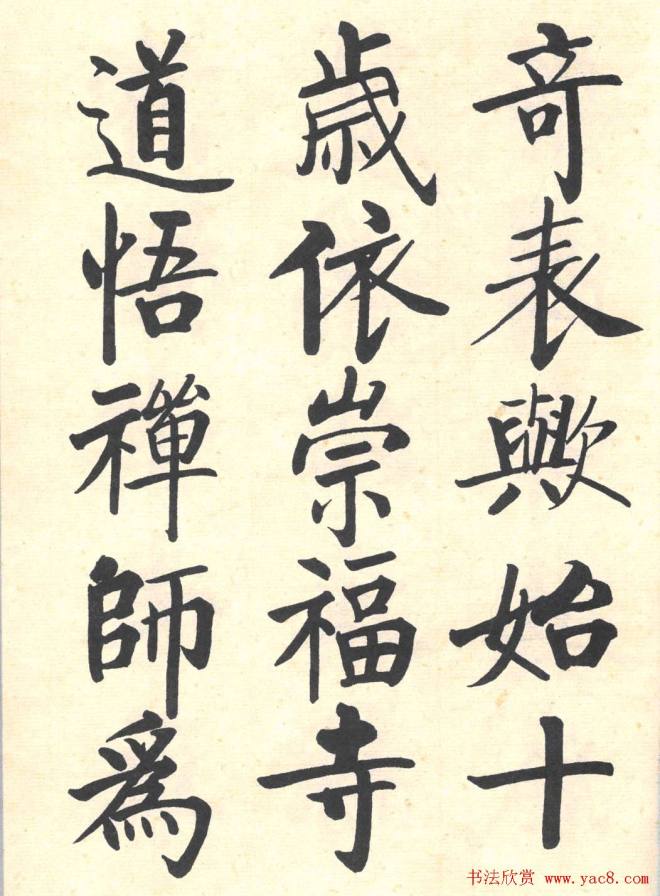 奇表歟始十
歲依崇福寺
道悟禪師為
书法欣赏 www.yac8.com